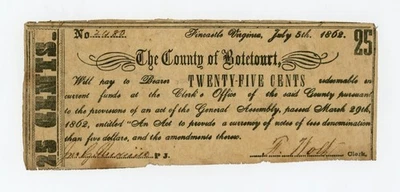 No
Fincastle Virginia, July 5th, 1862.
25
The County of Botetourt,
Will pay to Bearer TWENTY-FIVE CENTS redeemable in
current funds at the Clerk's Office of the said County pursuant
to the provisions of an act of the General Assembly, passed March 29th,
1862, entitled "An Act to provide a currency of notes of less denomination
than five dollars, and the amendments thereto.
P J.
Clerk.
25 CENTS.